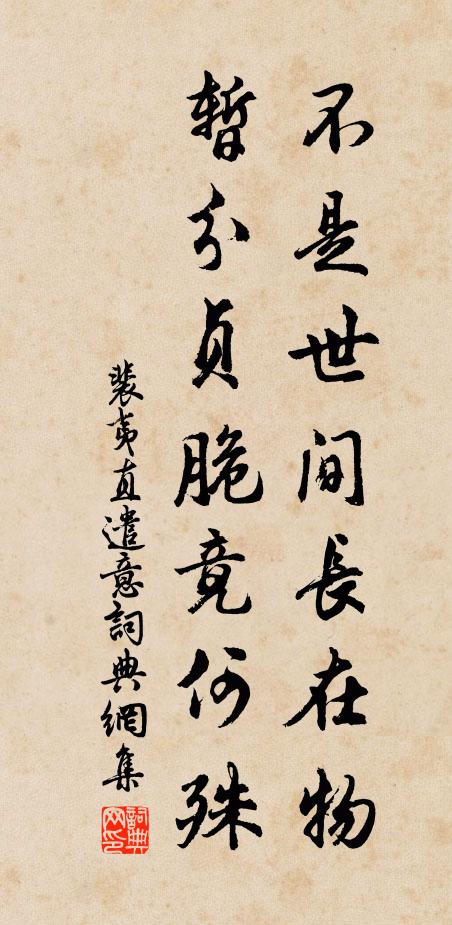 不是世間長在物
暫分貞脆竟何殊
裴夷直遣意詞典網集
詞典網印